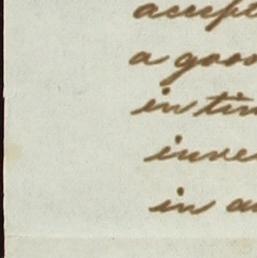 accept
a goo
in tin
inve
in a